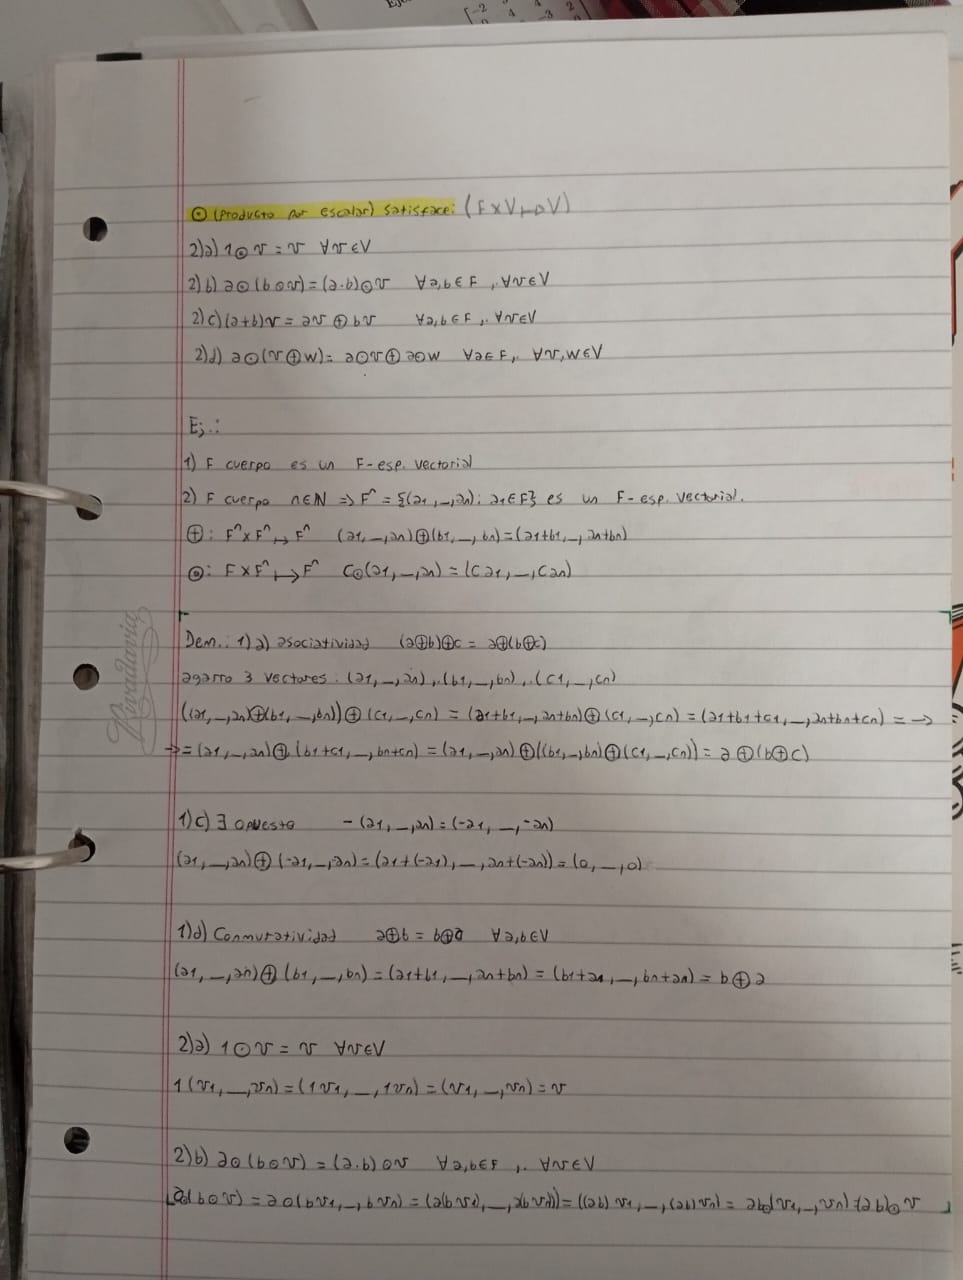 Eje
[-2
4 4
-3 2
⊙ (producto por escalar) satisface: (F×V↦V)
2)a) 1⊙v = v ∀v∈V
2)b) a⊙(b⊙v)=(a·b)⊙v ∀a,b∈F ,, ∀v∈V
2)c)(a+b)v = av ⊕ bv ∀a,b∈F ,, ∀v∈V
2)d) a⊙(v⊕w)= a⊙v⊕a⊙w ∀a∈F,, ∀v,w∈V
Ej.:
1) F cuerpo es un F-esp. vectorial
2) F cuerpo n∈N => Fⁿ = {(a1,_,an): a1∈F} es un F-esp. vectorial.
⊕: Fⁿ×Fⁿ↦Fⁿ (a1,_,an)⊕(b1,_,bn)=(a1+b1,_,an+bn)
⊙: F×Fⁿ↦Fⁿ c⊙(a1,_,an) = (ca1,_,can)
Rivadavia
Dem.: 1)a) asociatividad (a⊕b)⊕c = a⊕(b⊕c)
agarro 3 vectores: (a1,_,an),,(b1,_,bn),,(c1,_,cn)
((a1,_,an)⊕(b1,_,bn))⊕(c1,_,cn) = (a1+b1,_,an+bn)⊕(c1,_,cn) = (a1+b1+c1,_,an+bn+cn) = →
→= (a1,_,an)⊕(b1+c1,_,bn+cn) = (a1,_,an)⊕((b1,_,bn)⊕(c1,_,cn)) = a⊕(b⊕c)
1)c) ∃ opuesto -(a1,_,an)=(-a1,_,-an)
(a1,_,an)⊕(-a1,_,an)=(a1+(-a1),_,an+(-an))=(0,_,0)
1)d) Conmutatividad a⊕b = b⊕a ∀a,b∈V
(a1,_,an)⊕(b1,_,bn) = (a1+b1,_,an+bn) = (b1+a1,_,bn+an) = b⊕a
2)a) 1⊙v = v ∀v∈V
1(v1,_,vn)=(1v1,_,1vn)=(v1,_,vn)=v
2)b) a⊙(b⊙v) = (a·b)⊙v ∀a,b∈F ,, ∀v∈V
a⊙(b⊙v) = a⊙(bv1,_,bvn) = (a(bv1),_,a(bvn))= ((ab)v1,_,(ab)vn) = ab⊙(v1,_,vn)=(ab)⊙v